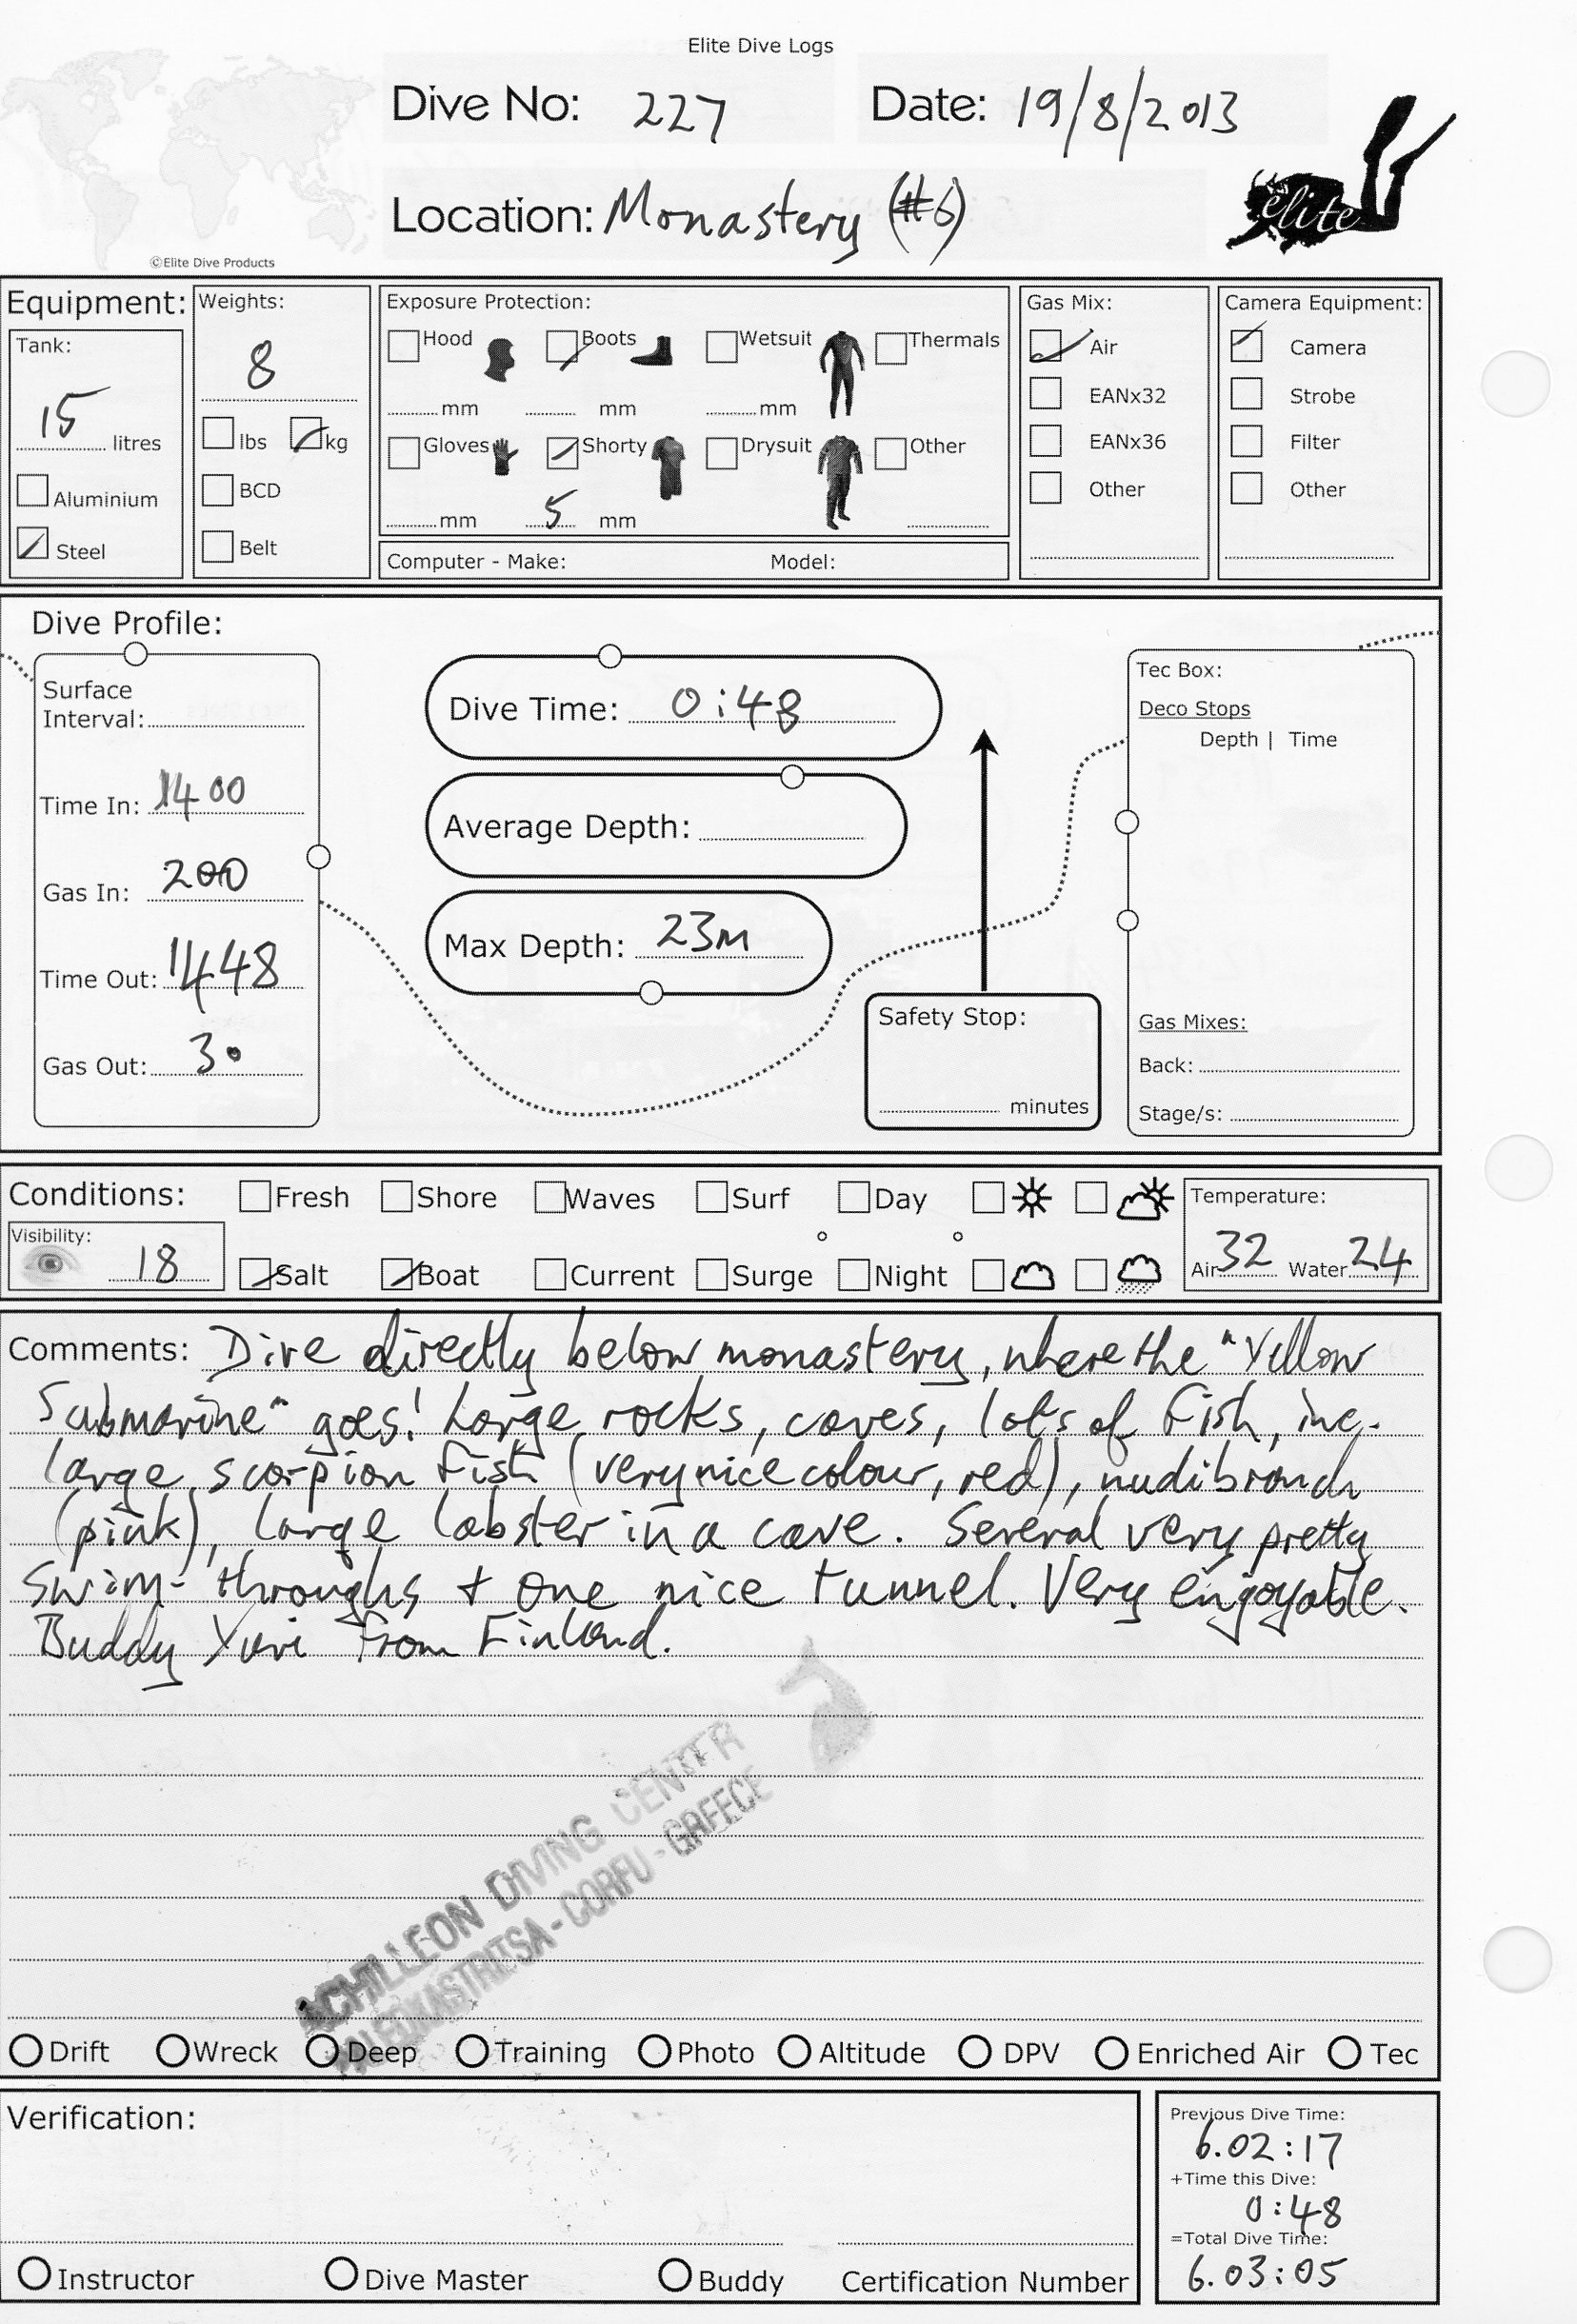 Elite Dive Logs
Dive No: 227
Date: 19/8/2013
Location: Monastery (#6)
elite
©Elite Dive Products
Equipment:
Tank:
15 litres
Aluminium
Steel
Weights:
8
lbs kg
BCD
Belt
Exposure Protection:
Hood Boots Wetsuit Thermals
mm mm mm
Gloves Shorty Drysuit Other
mm 5 mm
Computer - Make: Model:
Gas Mix:
Air
EANx32
EANx36
Other
Camera Equipment:
Camera
Strobe
Filter
Other
Dive Profile:
Surface
Interval:
Time In: 1400
Gas In: 200
Time Out: 1448
Gas Out: 30
Dive Time: 0:48
Average Depth:
Max Depth: 23m
Safety Stop:
minutes
Tec Box:
Deco Stops
Depth | Time
Gas Mixes:
Back:
Stage/s:
Conditions:
Fresh Shore Waves Surf Day
Visibility: 18
Salt Boat Current Surge Night
Temperature:
Air 32 Water 24
Comments: Dive directly below monastery, where the "Yellow
Submarine" goes! Large rocks, caves, lots of fish, inc.
large scorpion fish (very nice colour, red), nudibranch
(pink), large lobster in a cave. Several very pretty
swim-throughs + one nice tunnel. Very enjoyable.
Buddy Yuri from Finland.
ACHILLEON DIVING CENTER
PALEOKASTRITSA - CORFU - GREECE
Drift Wreck Deep Training Photo Altitude DPV Enriched Air Tec
Verification:
Instructor Dive Master Buddy Certification Number
Previous Dive Time:
6.02:17
+Time this Dive:
0:48
=Total Dive Time:
6.03:05